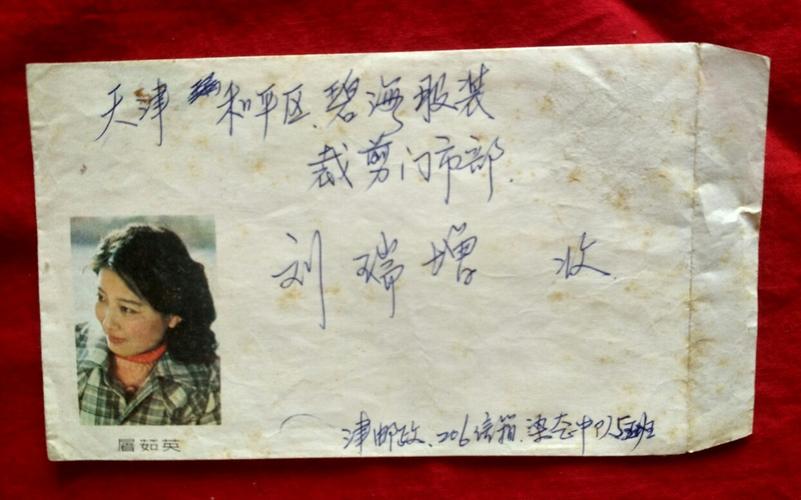 天津 和平区.碧海服装
裁剪门市部.
刘瑞增 收
津邮政.206信箱.
眉茹英